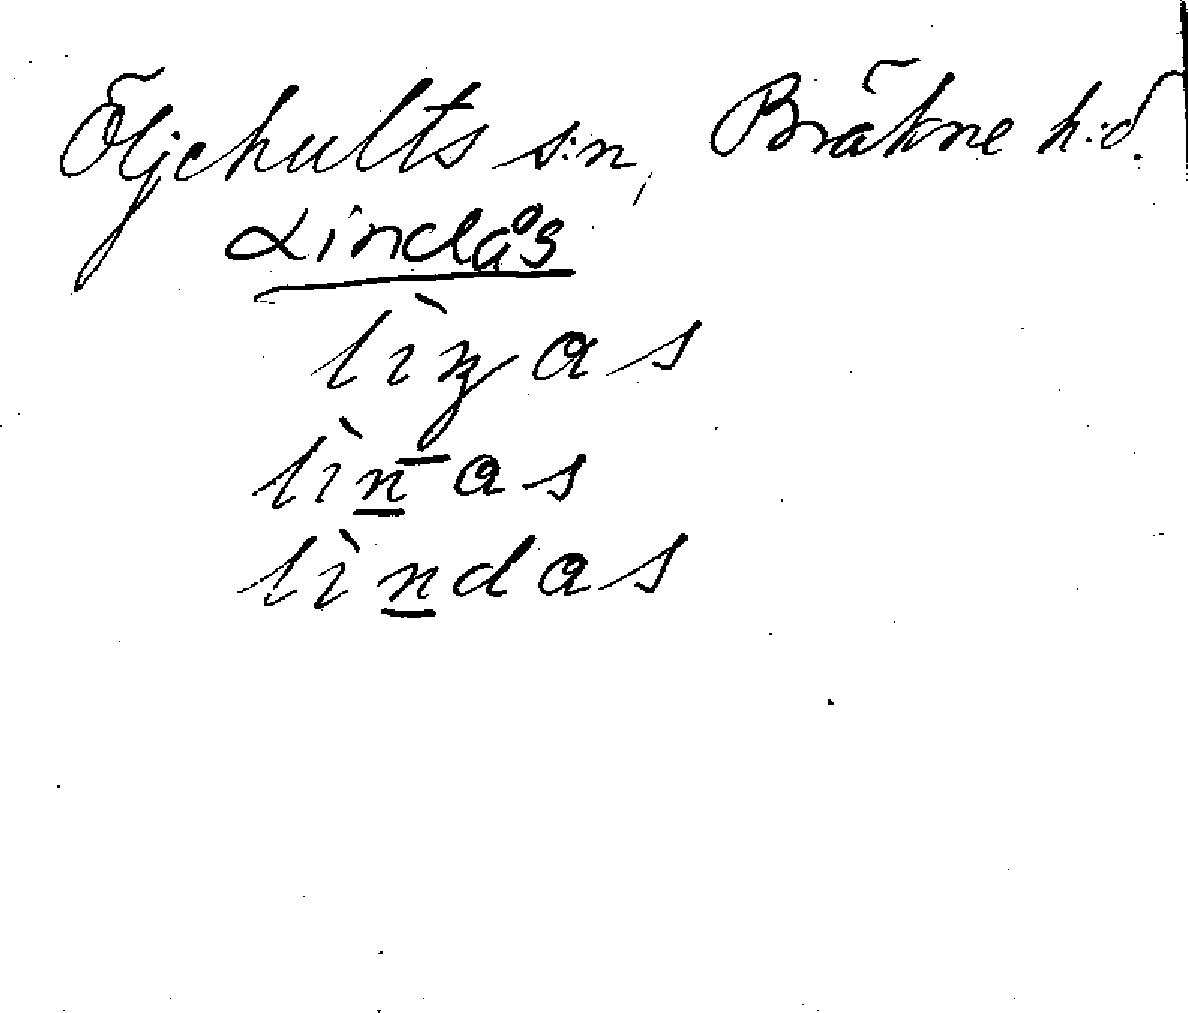 Öljehults s:n, Bräkne h:d.
Lindås
lìꞃas
lìn̲as
lìn̲das